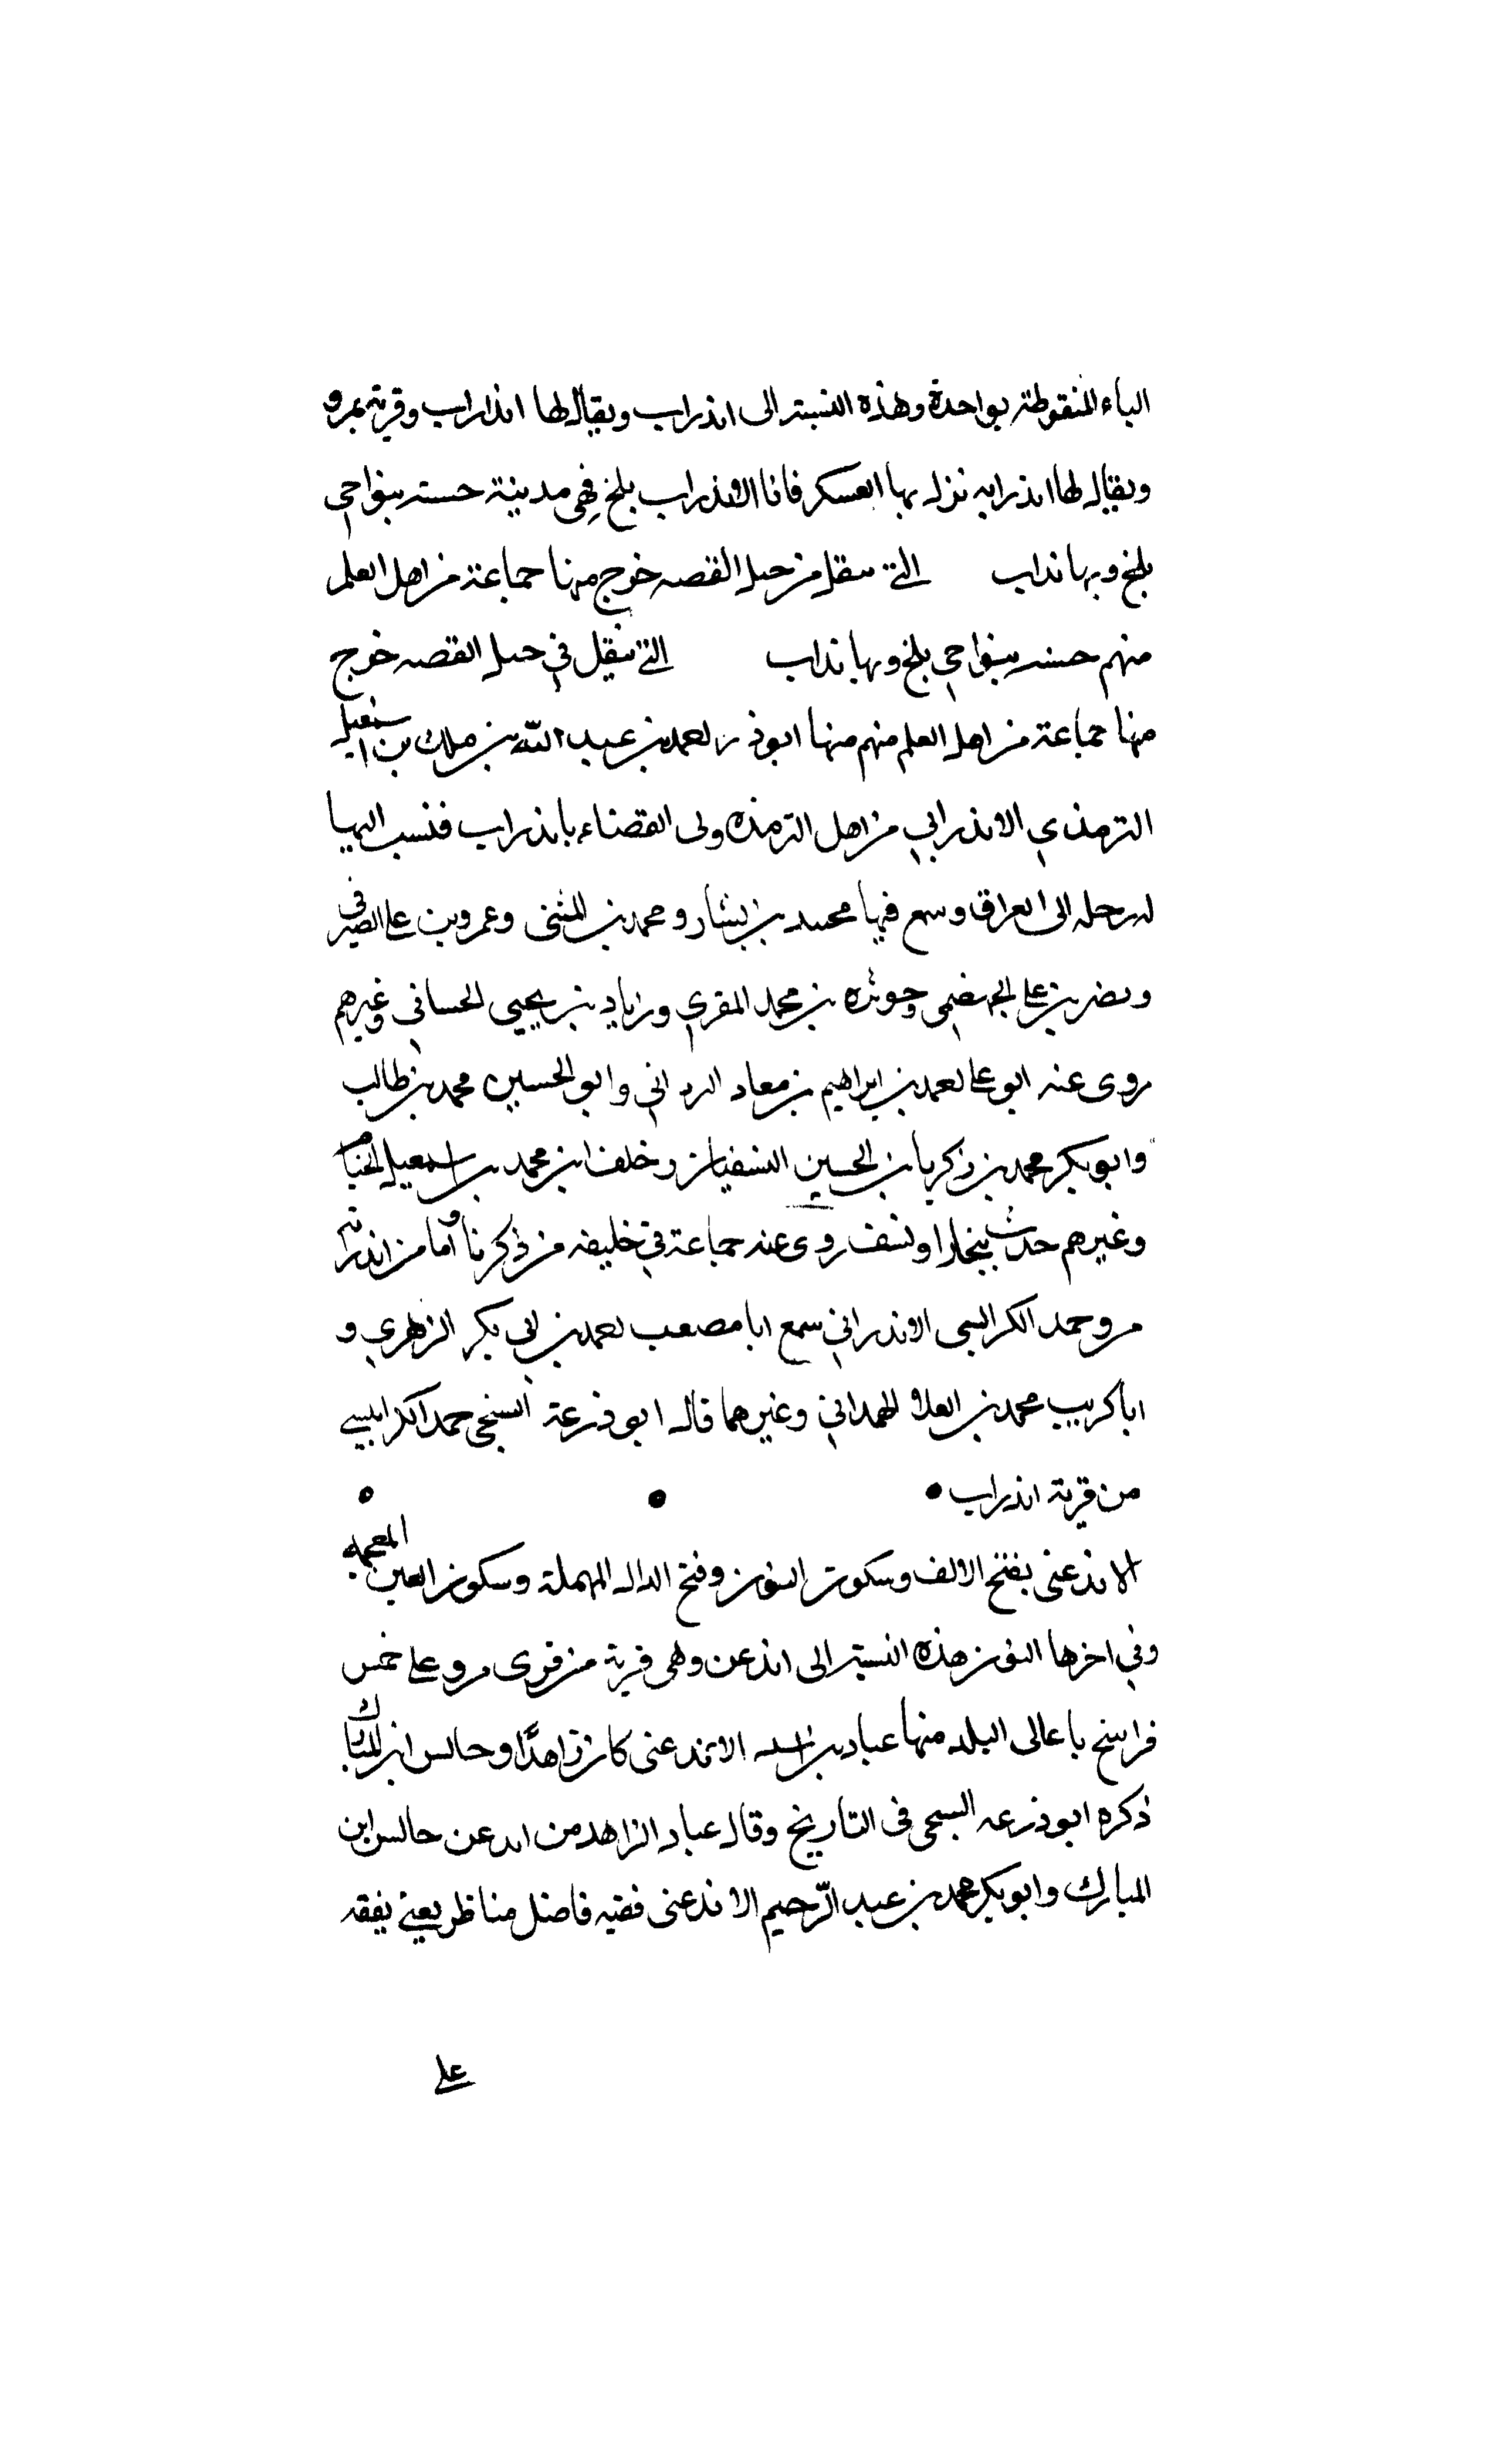 الباء المنقوطة بواحدة وهذه النسبة الى اندراب ويقال لها اندراب وقرية بمرو
ويقال لها اندرابه نزل بها العسكر فاما الاندراب بلخ فهى مدينة حسنة بنواحى
بلخ وبها تذاب التى ينقل من جبل الفضه خرج منها جماعة من اهل العلم
منهم حسنه بنواحى بلخ وبها تذاب التى ينقل فى جبل الفضه خرج
منها جماعة من اهل العلم منهم منها ابوذر احمد بن عبد الله بن ملك بن اسمعيل
الترمذي الاندرابي من اهل الترمذ ولى القضاء باندراب فنسب اليها
له رحله الى العراق وسمع فيها محمد بن بشار ومحمد بن المثنى وعمرو بن على الصيرفى
ونصر بن على الجهضمى وحوثره بن محمد المقري وزياد بن يحيى الحسانى وغيرهم
روى عنه ابو على احمد بن ابراهيم بن معاد وابو الحسين محمد بن طالب
وابوبكر محمد بن زكريا بن الحسين النسفيان وخلف ابن محمد بن اسمعيل الخيام
وغيرهم حدث ببخارا ونسف روى عنه جماعة فى خليفه من ذكرنا واما من اندرابة
مرو حمد الكرابسى الاندرانى سمع ابا مصعب احمد بن ابى بكر الزهري و
ابا كريب محمد بن العلا الهمدانى وغيرهما قال ابو زرعة السنجى حمد الكرابيسى
من قرية اندراب
الاندغنى بفتح الالف وسكون النون وفتح الدال المهملة وسكون الغين المعجمه
وفى اخرها النون هذه النسبة الى اندغن وهى قرية من قرى مرو على خمس
فراسخ باعالى البلد منها عباد بن اسد الاندغنى كان زاهدًا وجالس ابن المبارك
ذكره ابو زرعه السنجى فى التاريخ وقال عباد الزاهد من اندغن جالس ابن
المبارك وابوبكر محمد بن عبد الرّحيم الاندغنى فقيه فاضل مناظر يعنى تفقه
على